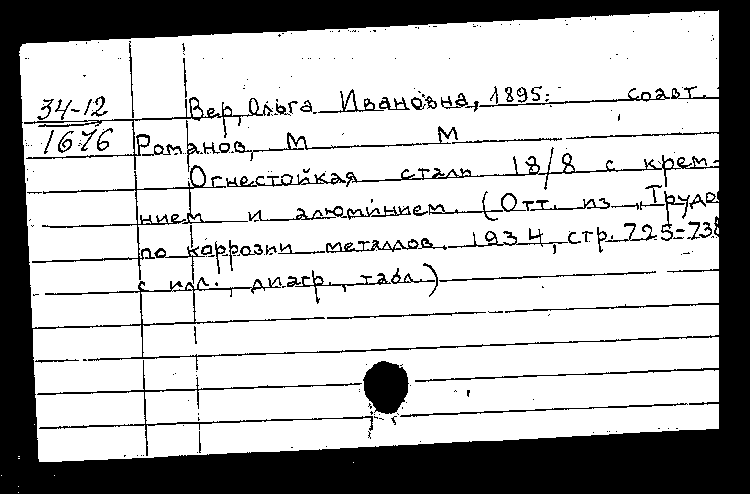 34-12
1676
Вер, Ольга Ивановна, 1895: соавт.
Романов, М М
Огнестойкая сталь 18/8 с крем-
нием и алюминием. (Отт. из „Трудо
по коррозии металлов. 1934, стр. 725-738
с илл., диагр., табл.)